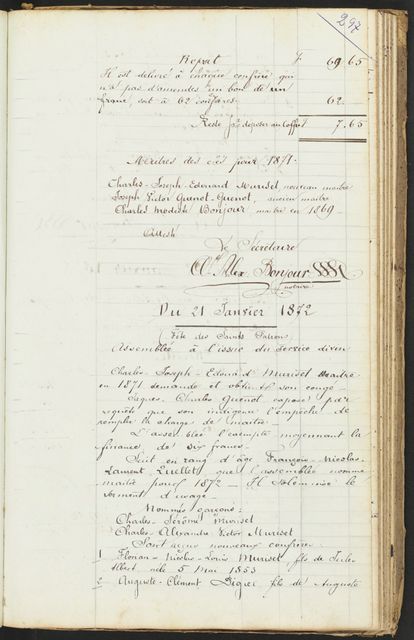 297
Report f 69 65
Il est délivré à chaque confrère qui
n'a pas d'amendes un bon de un
franc, soit à 62 confrères. 62.
Reste à déposer au Coffre f 7.65
Maitres des clés pour 1871.
Charles-Joseph-Edouard Muriset nouveau maitre
Joseph Victor Quenot-Quenot, ancien maitre
Charles Modeste Bonjour maitre en 1869
Atteste
Le Secrétaire
Cs. Alex. Bonjour
notaire
Du 21 Janvier 1872
(Fête des Saints Patrons
Assemblée à l'issue du service divin
Charles-Joseph-Edouard Muriset Maitre
en 1871 demande et obtient son congé
Jaques-Charles Quenot expose par
requête que son indigence l'empêche de
remplir la charge de maitre.
L'assemblée l'exempte moyennant la
finance de six francs.
Suit en rang d'âge François-Nicolas-
Laurent Quellet que l'assemblée nomme
maitre pour 1872 - Il solemnise le
serment d'usage.
Nommés garçons:
Charles-Jérôme Muriset
Charles-Alexandre Victor Muriset
Sont reçus nouveaux confrères
1 Florian-Nicolas-Louis Muriset fils de Jules-
Albert né le 5 Mai 1853
2 Auguste-Clément Digier fils de Auguste